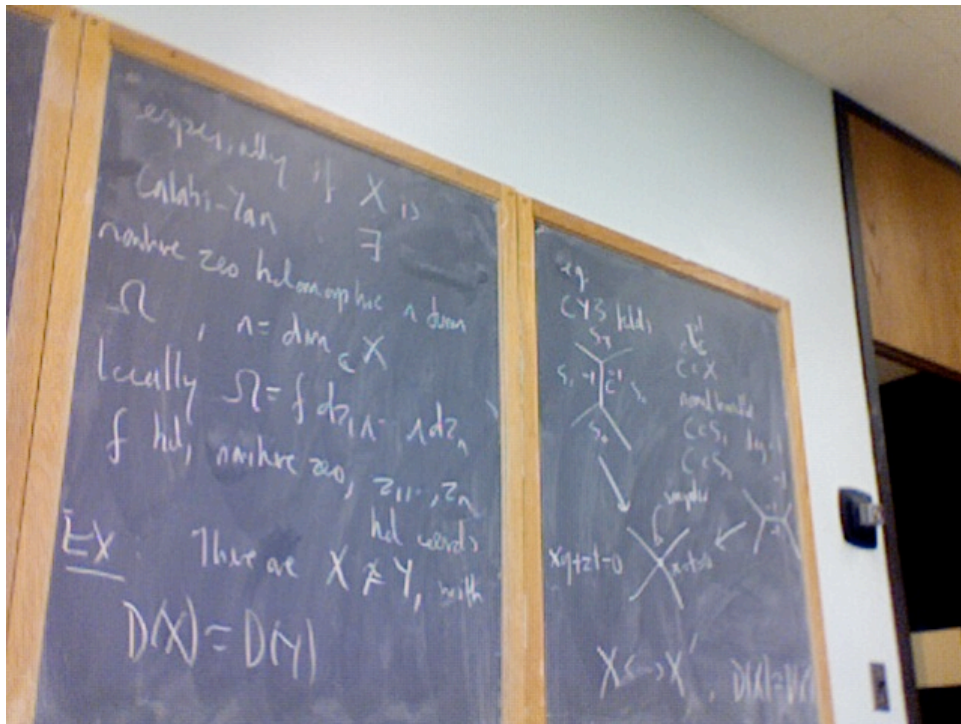 especially if X is
Calabi-Yau ∃
nowhere zero holomorphic n form
Ω , n = dim_C X
locally Ω = f dz_1 ∧ ⋯ ∧ dz_n
f hol, nowhere zero, z_1, ⋯, z_n
hol coords
EX. There are X ≇ Y, with
D(X) = D(Y)
eg.
CY3 folds
C ⊂ X
normal bundle
C ⊂ S_1 deg -1
C ⊂ S_2
-1 C -1
singular
xy+zt=0
X ↔ X' , D(X)=D(X')